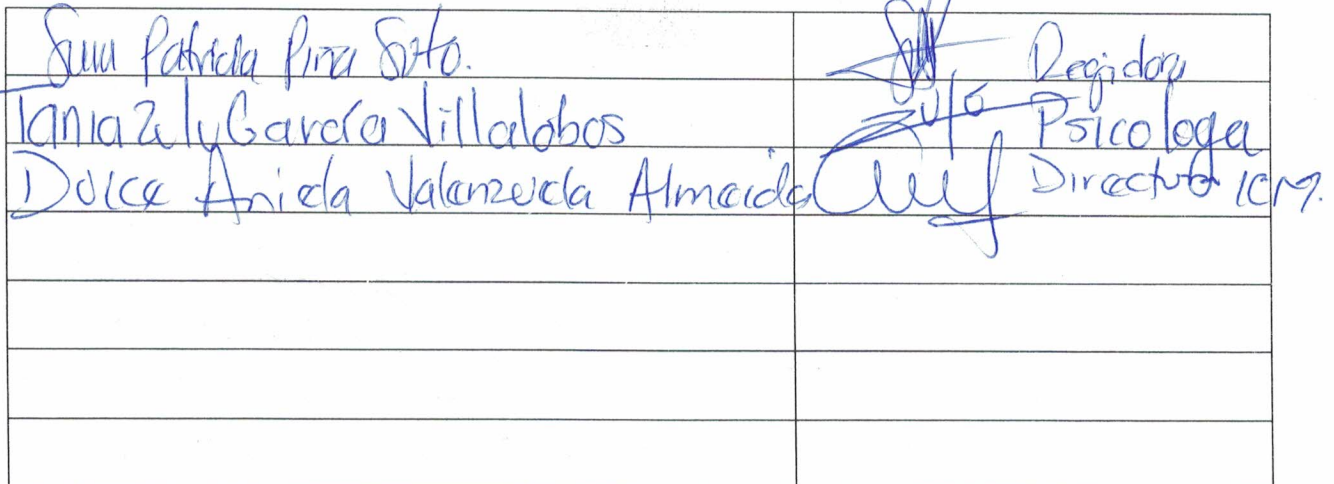 Patricia Piña Soto. Regidora
Tania Zuly García Villalobos Psicologa
Dulce Aniela Valenzuela Almeida Directora ICM.